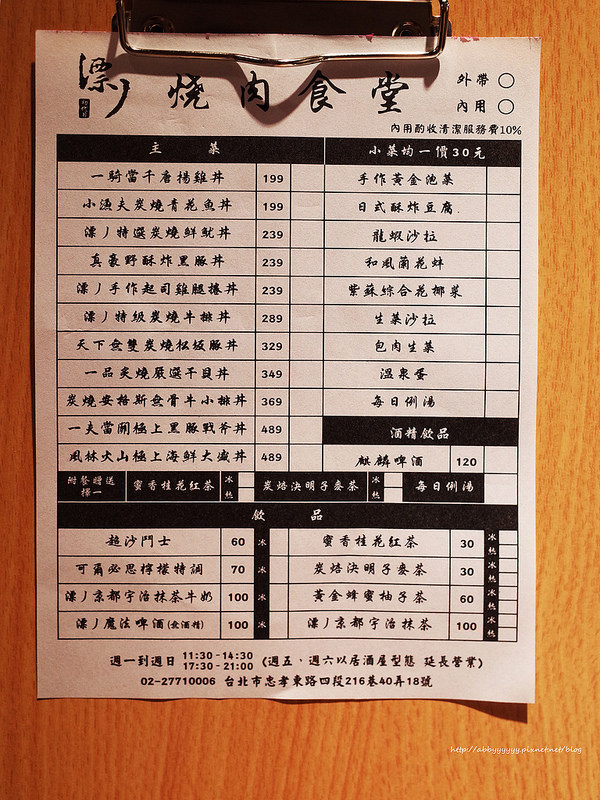 漂丿燒肉食堂
外帶 ○
內用 ○
內用酌收清潔服務費10%
主菜
一騎當千唐揚雞丼 199
小漁夫炭燒青花魚丼 199
漂丿特選炭燒鮮魷丼 239
真豪野酥炸黑豚丼 239
漂丿手作起司雞腿捲丼 239
漂丿特級炭燒牛排丼 289
天下無雙炭燒松板豚丼 329
一品炙燒嚴選干貝丼 349
炭燒安格斯無骨牛小排丼 369
一夫當關極上黑豚戰斧丼 489
風林火山極上海鮮大滿丼 489
小菜均一價30元
手作黃金泡菜
日式酥炸豆腐
龍蝦沙拉
和風蘭花蚌
紫蘇綜合花椰菜
生菜沙拉
包肉生菜
溫泉蛋
每日例湯
酒精飲品
麒麟啤酒 120
附餐贈送擇一 蜜香桂花紅茶 冰 熱 炭焙決明子麥茶 冰 熱 每日例湯
飲品
超沙鬥士 60 冰
可爾必思檸檬特調 70 冰
漂丿京都宇治抹茶牛奶 100 冰
漂丿魔法啤酒(無酒精) 100 冰
蜜香桂花紅茶 30 冰 熱
炭焙決明子麥茶 30 冰 熱
黃金蜂蜜柚子茶 60 冰 熱
漂丿京都宇治抹茶 100 冰 熱
週一到週日 11:30-14:30
17:30-21:00 (週五、週六以居酒屋型態 延長營業)
02-27710006 台北市忠孝東路四段216巷40弄18號
http://abbyyyyyy.pixnet.net/blog